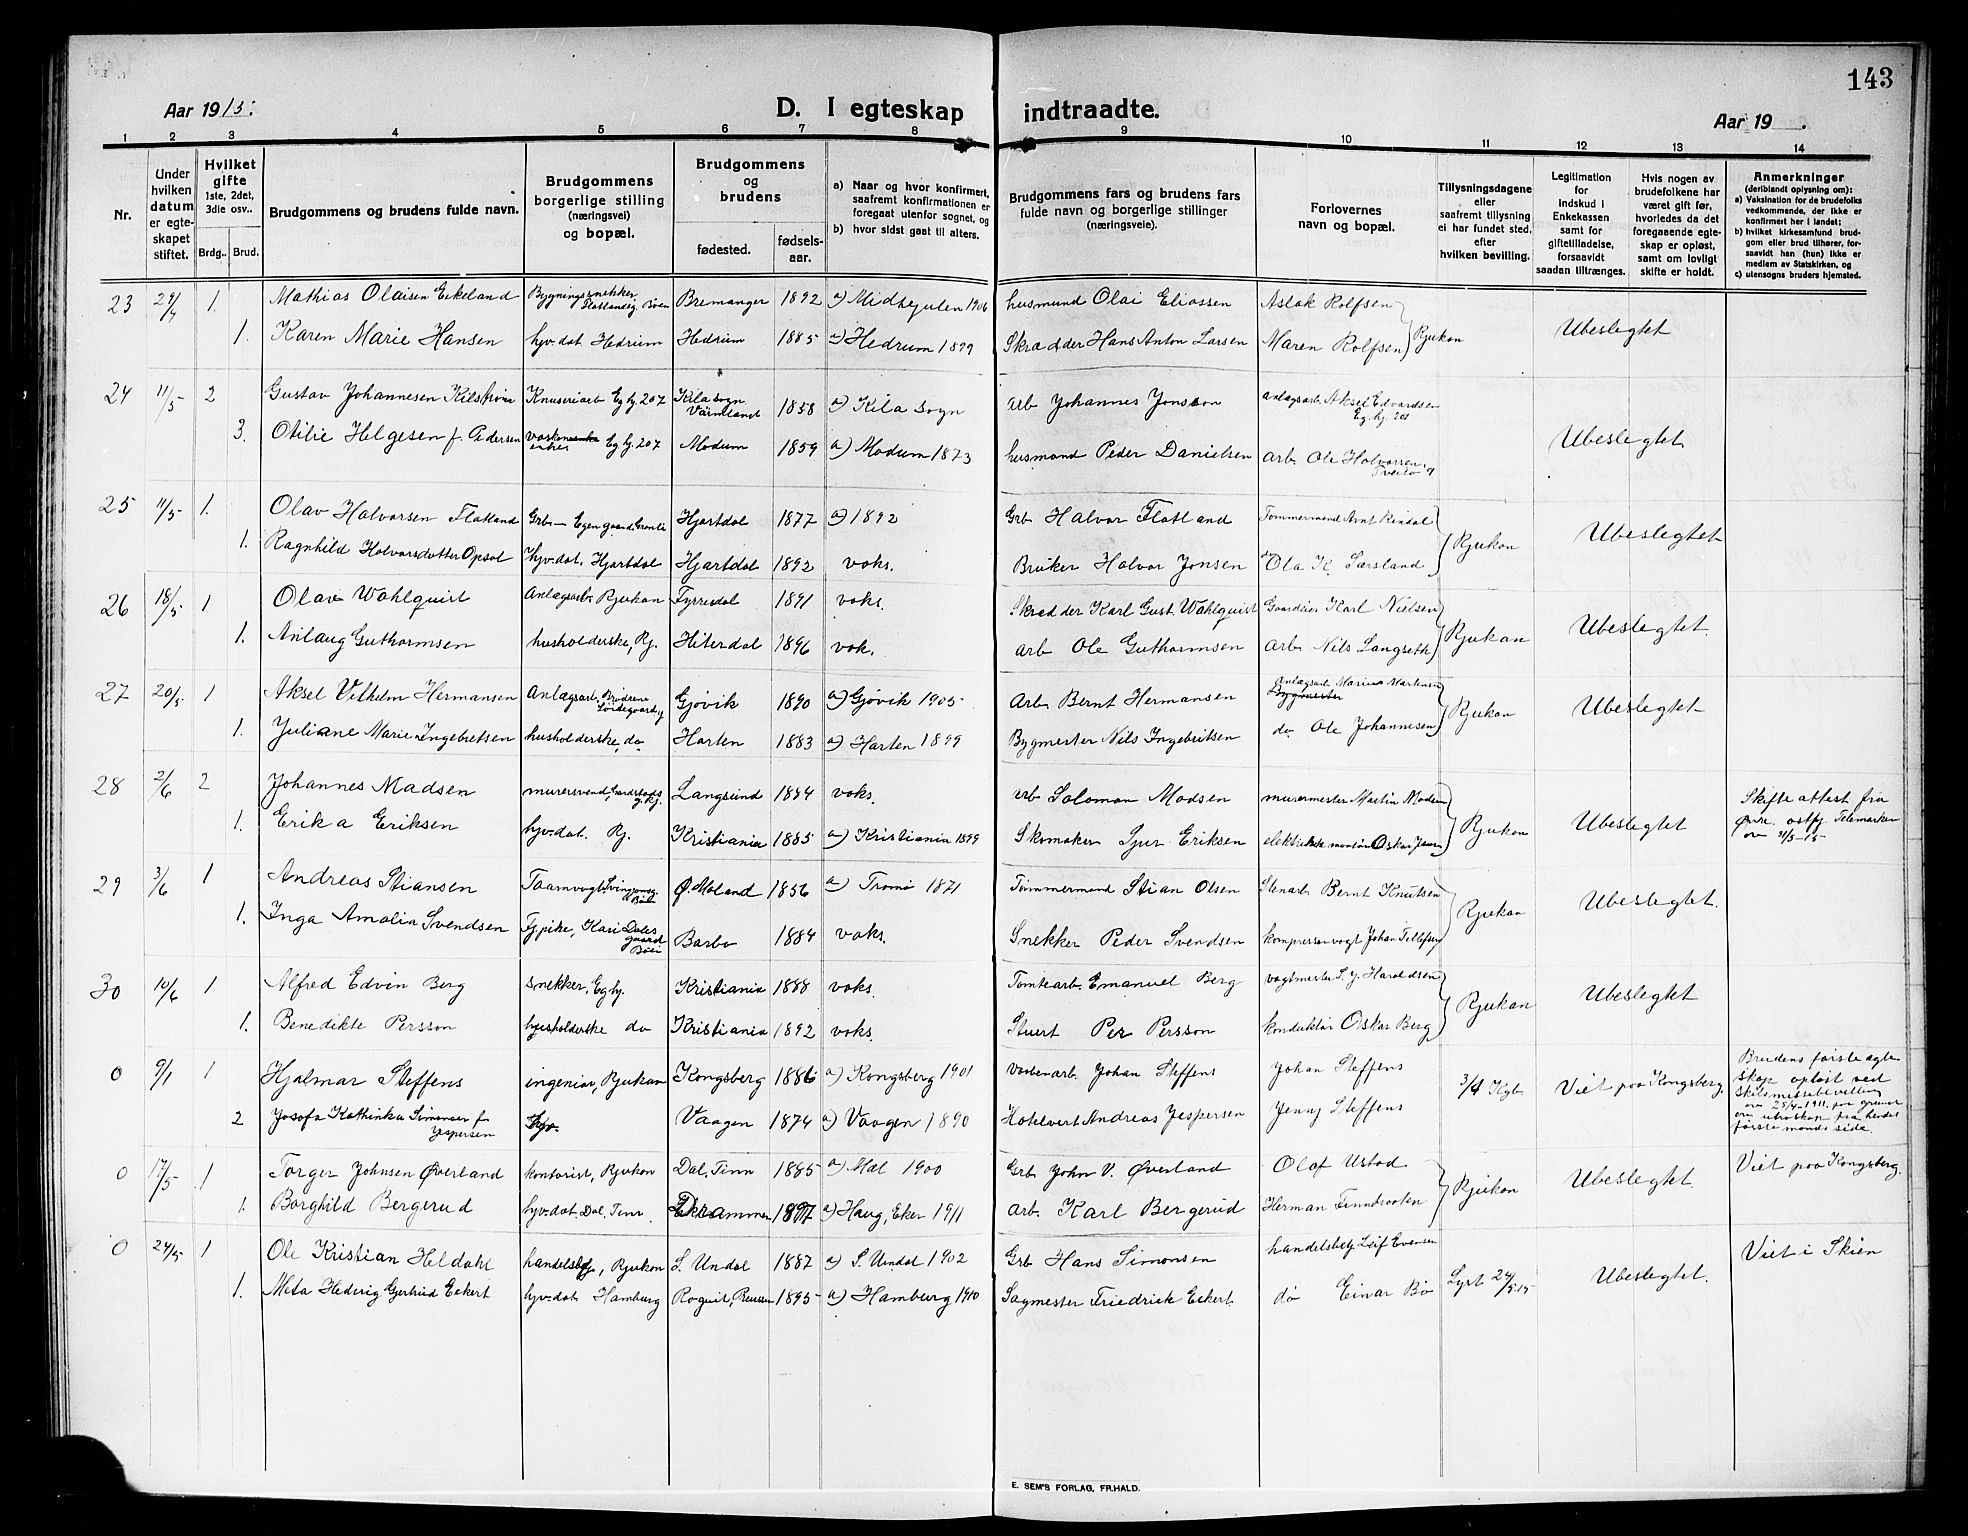 143
Aar 1915. D. I egteskap indtraadte. Aar 19 .
1 2 3 4 5 6 7 8 9 10 11 12 13 14
Nr.
Under hvilken datum er egteskapet stiftet.
Hvilket gifte 1ste, 2det, 3die osv.. Brdg.. Brud.
Brudgommens og brudens fulde navn.
Brudgommens borgerlige stilling (næringsvei) og bopæl.
Brudgommens og brudens fødested. fødsels-aar.
a) Naar og hvor konfirmert, saafremt konfirmationen er foregaat utenfor sognet, og
b) hvor sidst gaat til alters.
Brudgommens fars og brudens fars fulde navn og borgerlige stillinger (næringsveie).
Forlovernes navn og bopæl.
Tillysningsdagene eller saafremt tillysning ei har fundet sted, efter hvilken bevilling.
Legitimation for indskud i Enkekassen samt for giftetilladelse, forsaavidt saadan tiltrænges.
Hvis nogen av brudefolkene har været gift før, hvorledes da det foregaaende egteskap er opløst, samt om lovligt skifte er holdt.
Anmerkninger (deriblandt oplysning om):
a) Vaksination for de brudefolks vedkommende, der ikke er konfirmert her i landet;
b) hvilket kirkesamfund brudgom eller brud tilhører, forsaavidt han (hun) ikke er medlem av Statskirken, og
c) utensogns bruders hjemsted.
23 1. Mathias Olaisen Ekeland Bygningssnekker Bremanger 1892 a) Midtgulen 1906 husmand Olai Eliassen Aslak Rolfsen
1. Karen Marie Hansen hjv. dat. Hedrum Hedrum 1885 a) Hedrum 1899 Skrædder Hans Anton Larsen Maren Rolfsen Rjukan Ubeslegtet
24 11/5 2 Gustav Johannesen Eg. bj. 207 Kila sogn Värmland 1858 a) Kila sogn arb. Johannes Jonsson anlægsarb. Aksel Edvardsen Eg. bj. 201
3. Otilie Helgesen f. Pedersen Eg. bj. 207 Modum 1859 a) Modum 1873 husmand Peder Danielsen arb. Ole Halvorsen Ubeslegtet
25 11/5 1. Olav Halvorsen Flatland Grb. Hjartdal 1877 a) 1892 Grb. Halvor Flatland Tømmermand Arnt Rindal
1. Ragnhild Halvorsdotter Opsal hjv. dat. Hjartdal Hjartdal 1892 voks. Bruker Halvor Jonsen Ola K. Særsland Rjukan Ubeslegtet
26 18/5 1 Olav Wahlquist Anlægsarb. Rjukan Fyrresdal 1891 voks. Skrædder Karl Gust. Wahlquist Gaardeier Karl Nielsen
1. Anlaug Guthormsen husholderske, Rj. Hiterdal 1896 vok. arb. Ole Guthormsen arb. Nils Langseth Rjukan Ubeslegtet.
27 20/5 1 Aksel Vilhelm Hermansen Anlægsarb. Brødrene Gjøvik 1890 a) Gjøvik 1905 Arb. Bernt Hermansen anlægsarb. Marius Martinsen
1. Juliane Marie Ingebretsen husholderske, do Horten 1883 a) Horten 1899 Bygmester Nils Ingebritsen do. Ole Johannesen Rjukan Ubeslegtet
28 2/6 2 Johannes Madsen murersvend, Langsund 1884 voks. arb. Salomon Madsen murermester Martin Madsen
1. Erika Eriksen hjv. dat. Rj. Kristiania 1885 a) Kristiania 1899 Skomaker Sjur Eriksen elektrisk montør Oskar Jensen Rjukan Ubeslegtet Skifteattest fra Øvre. ostfj. Telemarken av 31/5-15
29 3/6 1 Andreas Stiansen Taarnvogt, Ø. Moland 1856 a) Tromø 1871 Tømmermand Stian Olsen Stenarb. Bernt Knutsen
1. Inga Amalia Svendsen Tj.pike, Kari Dalesgaard Bøen Barbo 1884 voks. Snekker Peder Svendsen kompressorvogt Johan Tellefsen Rjukan Ubeslegtet.
30 10/6 1 Alfred Edvin Berg snekker, Eg. bj. Kristiania 1888 voks. Tomtearb. Emanuel Berg vogtmester S. J. Haroldsen
1. Benedikte Persson husholderske do Kristiania 1892 voks. Stuert Per Persson konduktør Oskar Berg Rjukan Ubeslegtet
0 9/1 1 Hjalmar Steffens ingeniør, Rjukan Kongsberg 1886 a) Kongsberg 1901 Vaabenarb. Johan Steffens Johan Steffens
2 Josefa Kathinka Simensen f. Jespersen hjv. Vaagen 1874 a) Vaagen 1890 Hotelvert Andreas Jespersen Jenny Steffens 3/4 Kgb. Viet paa Kongsberg. Brudens første ægteskap opløst ved Skilsmissebevilling av 28/4-1911. paa grund av utroskap fra hendes første mands side.
0 17/5 1 Torger Johnsen Øverland kontorist, Rjukan Dal, Tinn 1885 a) Mæl 1900 Grb. John V. Øverland Olaf Ustad Viet paa Kongsberg.
1. Borghild Bergerud hjv. dat. Dal, Tinn Drammen 1897 a) Haug, Eker 1911 arb. Karl Bergerud Herman Finndrooten Rjukan Ubeslegtet.
0 24/5 1 Ole Kristian Heldahl handelsbetj., Rjukan S. Undal 1887 a) S. Undal 1902 Grb. Hans Simonsen handelsbetj. Leif Evensen Viet i Skien
1. Meta Hedvig Gertrud Eckert hjv. dat. Hamburg 1895 a) Hamburg 1910 Sagmester Friedrick Eckert. do Einar Bø Lyst 24/5-15 Ubeslegtet.
E. SEM'S FORLAG, FR.HALD.